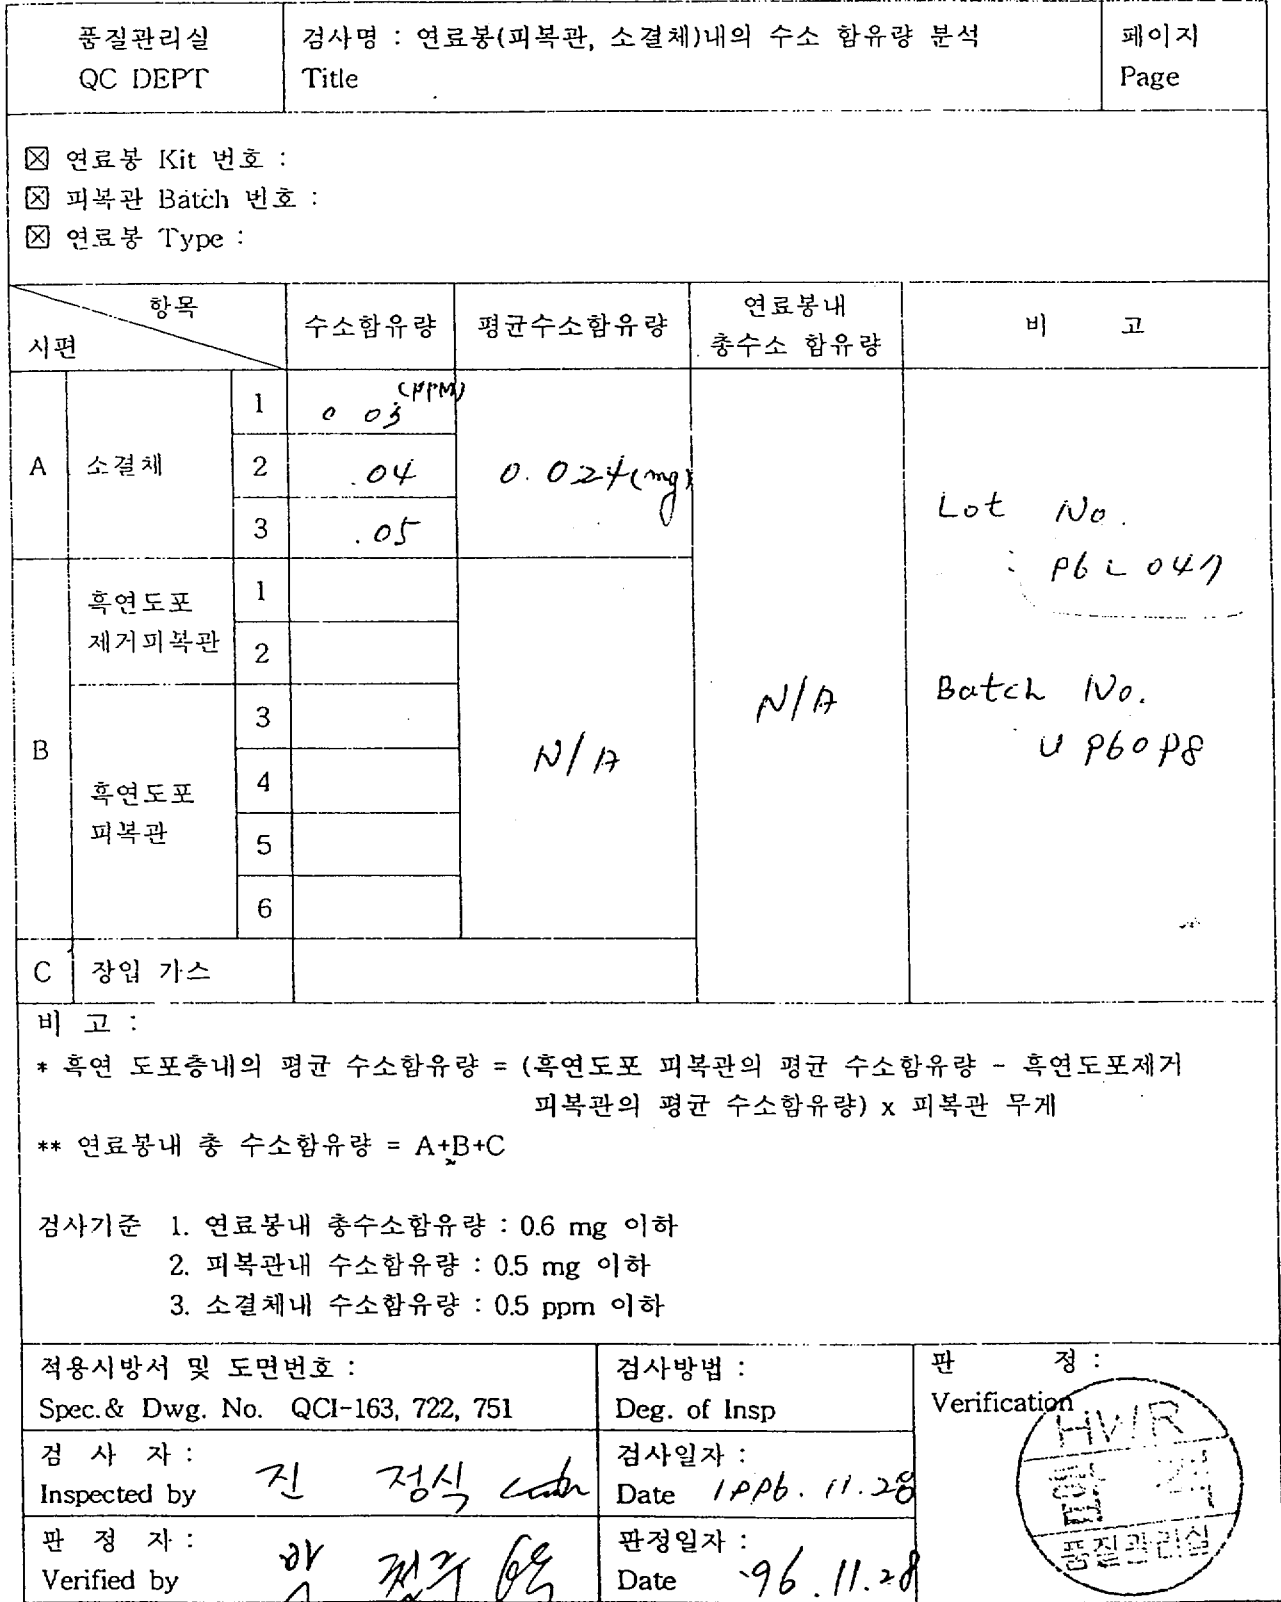 품질관리실
QC DEPT
검사명 : 연료봉(피복관, 소결체)내의 수소 함유량 분석
Title
페이지
Page
☒ 연료봉 Kit 번호 :
☒ 피복관 Batch 번호 :
☒ 연료봉 Type :
항목
시편
수소함유량
평균수소함유량
연료봉내
총수소 함유량
비 고
A
소결체
1
0 03 (PPM)
2
.04
3
.05
0.024(mg)
B
흑연도포
제거피복관
1
2
흑연도포
피복관
3
4
5
6
N/A
N/A
Lot No.
: P6L047
Batch No.
U P60P8
C
장입 가스
비 고 :
* 흑연 도포층내의 평균 수소함유량 = (흑연도포 피복관의 평균 수소함유량 - 흑연도포제거
피복관의 평균 수소함유량) x 피복관 무게
** 연료봉내 총 수소함유량 = A+B+C
검사기준 1. 연료봉내 총수소함유량 : 0.6 mg 이하
2. 피복관내 수소함유량 : 0.5 mg 이하
3. 소결체내 수소함유량 : 0.5 ppm 이하
적용시방서 및 도면번호 :
Spec.& Dwg. No. QCI-163, 722, 751
검사방법 :
Deg. of Insp
판 정 :
Verification
HWR
합 격
품질관리실
검 사 자 :
Inspected by 진 정식
검사일자 :
Date 1996. 11.28
판 정 자 :
Verified by
판정일자 :
Date '96.11.28